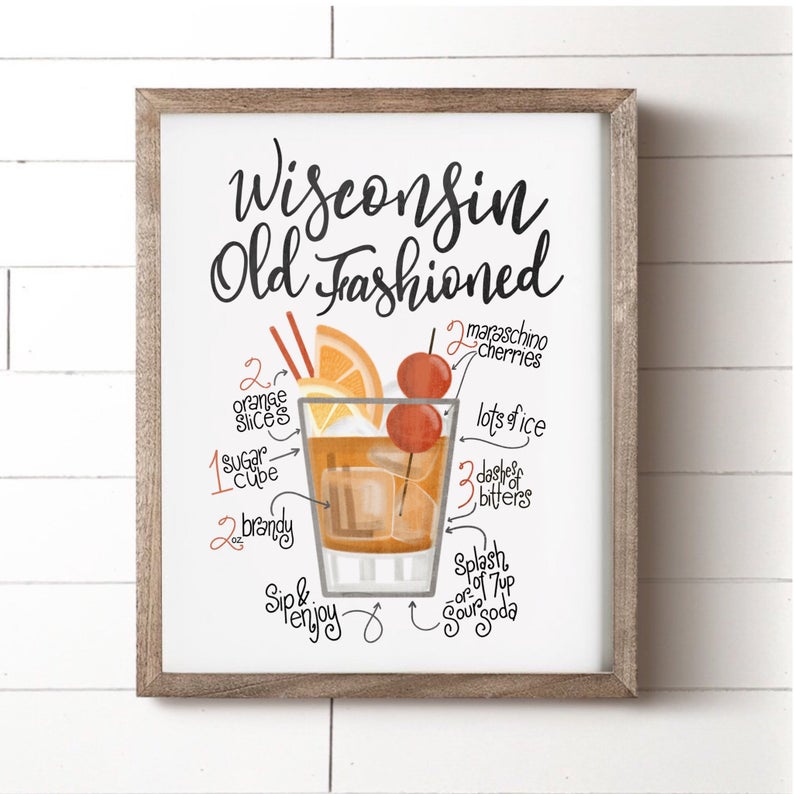 Wisconsin
Old Fashioned
2 maraschino
cherries
2
orange
slices
lots of ice
1 sugar
cube
3 dashes of
bitters
2 oz. brandy
Splash
of 7up
-or-
Sour soda
Sip &
enjoy